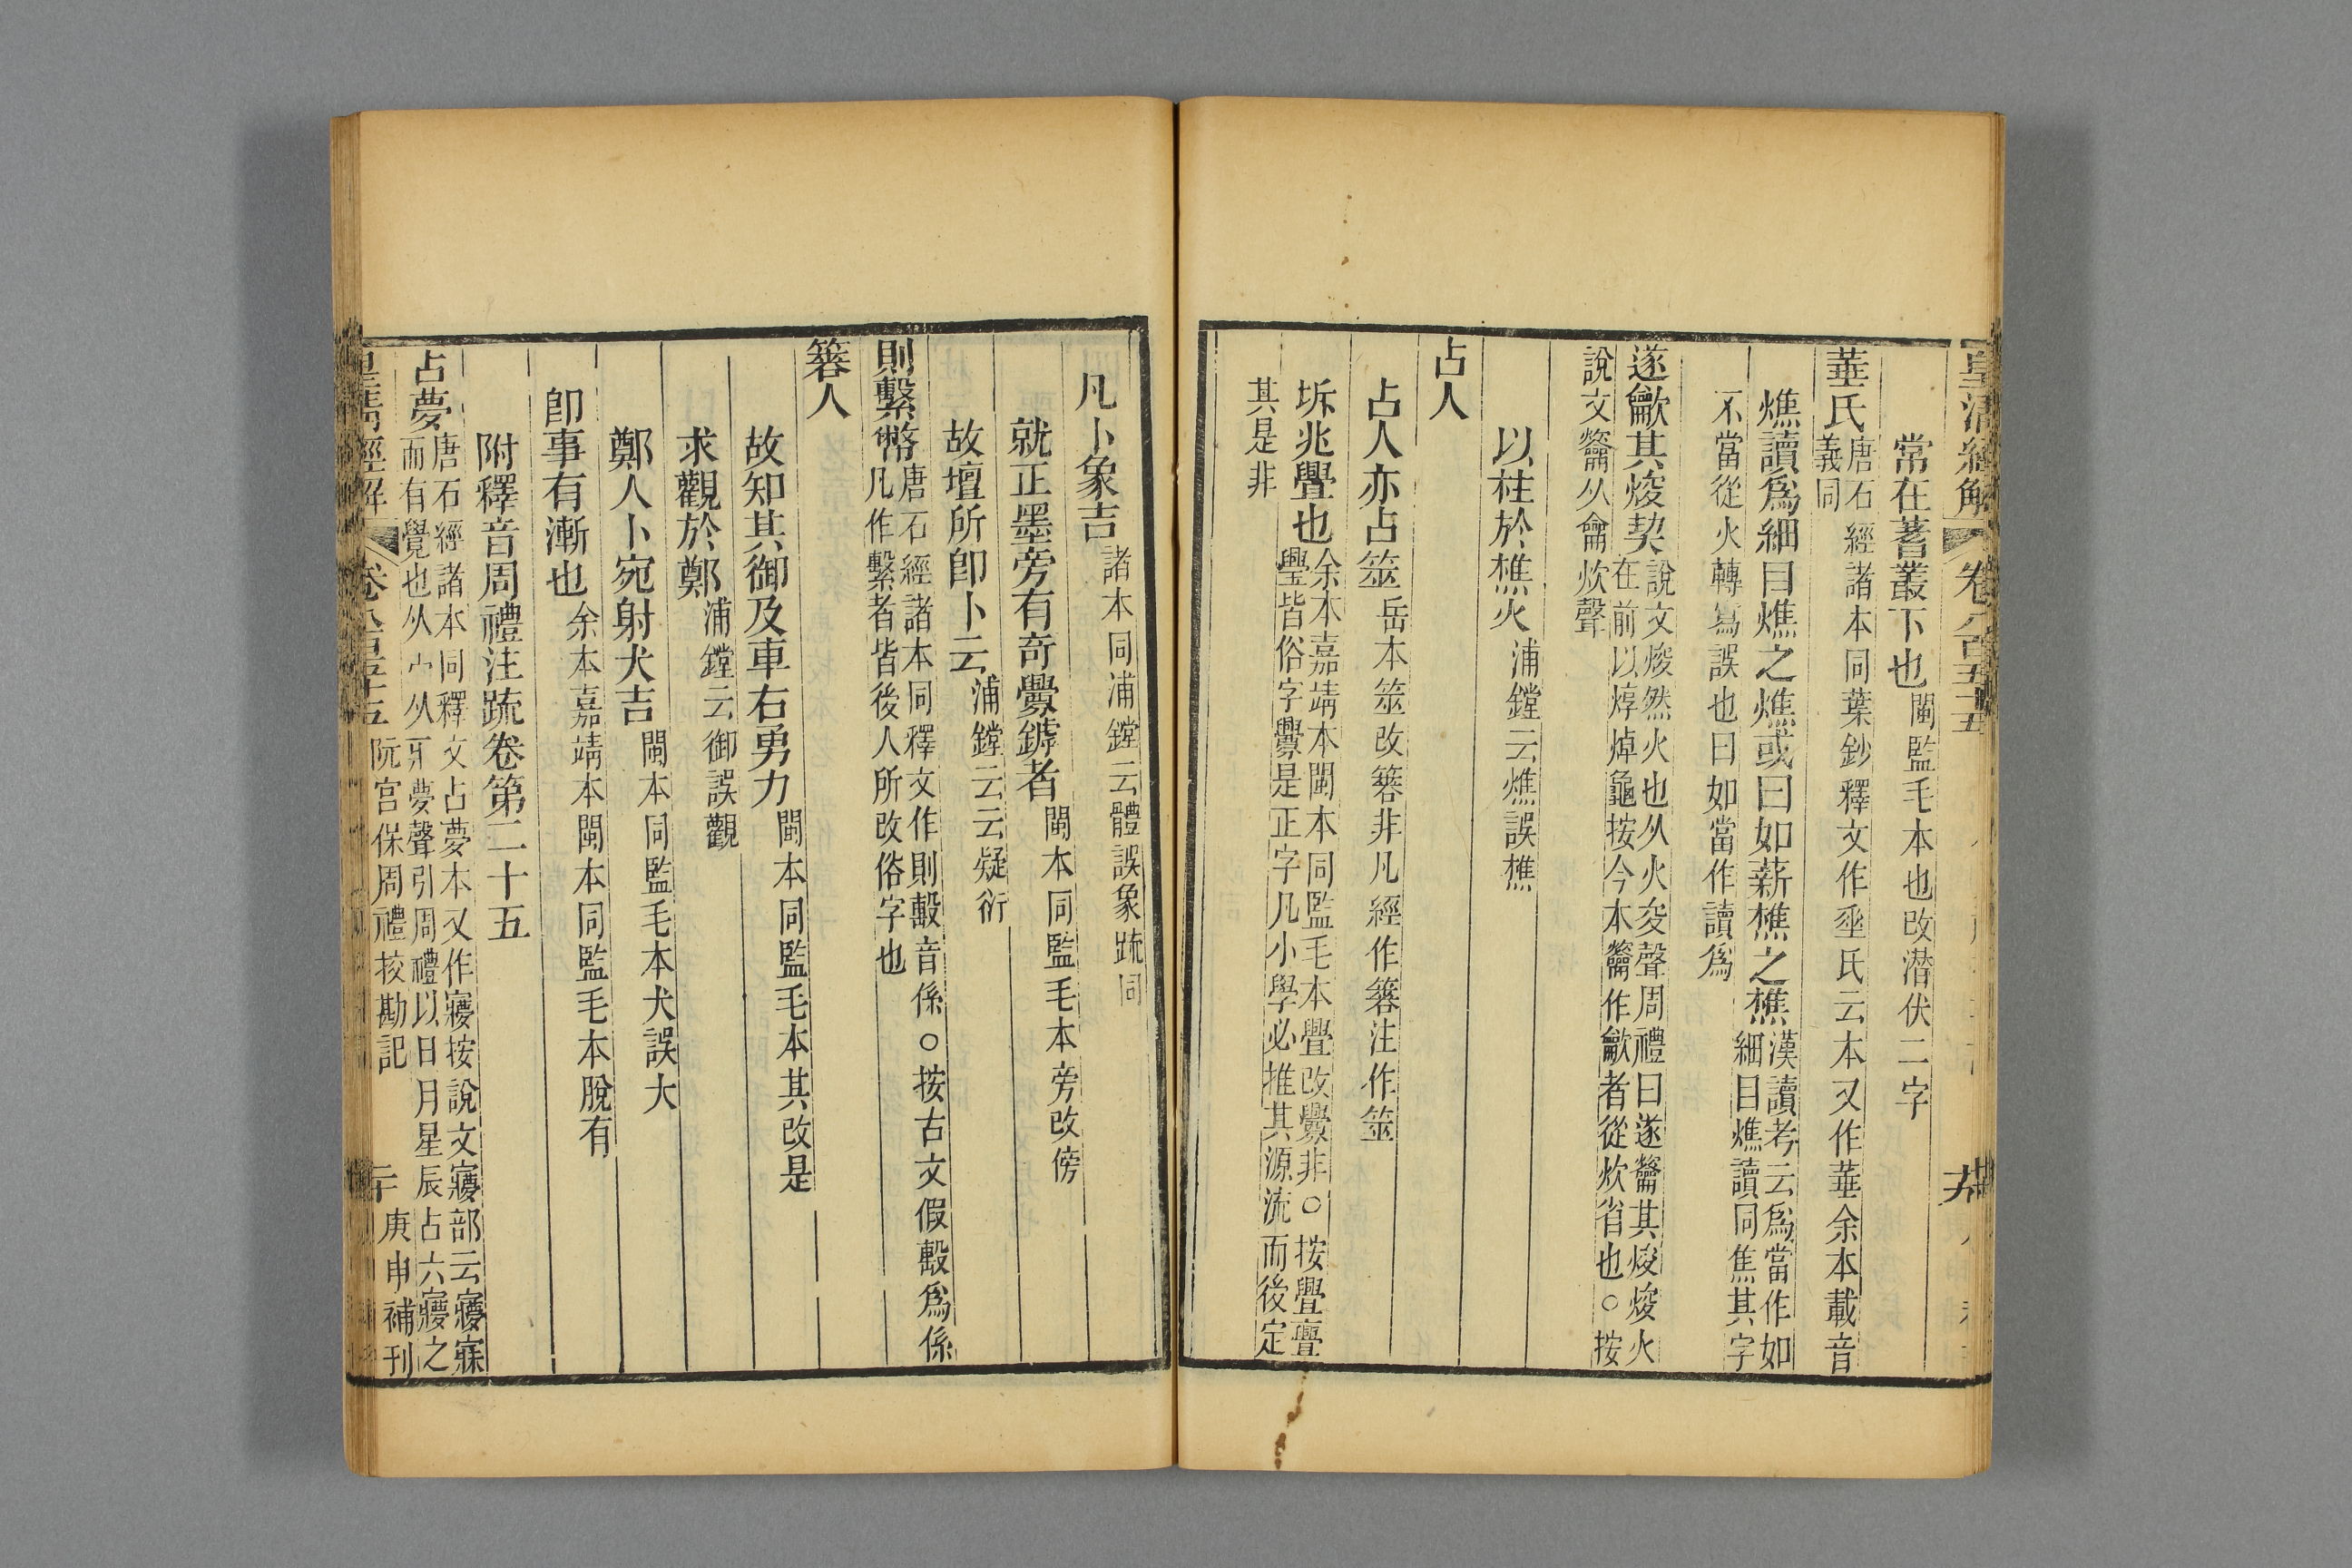 皇清經解 卷八百五十五
常在蓍叢下也閩監毛本也改潛伏二字
菙氏唐石經諸本同葉鈔釋文作𡍮氏云本又作菙余本載音
義同
燋讀爲細目燋之燋或曰如薪樵之樵漢讀考云爲當作如
細目燋讀同焦其字
不當從火轉寫誤也曰如當作讀爲
遂龡其焌契說文焌然火也从火夋聲周禮曰遂籥其焌焌火
在前以焞焯龜按今本籥作龡者從炊省也○按
說文籥从龠炊聲
以柱於樵火浦鏜云燋誤樵
占人
占人亦占筮岳本筮改簭非凡經作簭注作筮
坼兆舋也余本嘉靖本閩本同監毛本舋改釁非○按舋亹
璺皆俗字釁是正字凡小學必推其源流而後定
其是非
凡卜象吉諸本同浦鏜云體誤象䟽同
就正墨旁有奇釁罅者閩本同監毛本旁改傍
故壇所卽卜云浦鏜云云疑衍
則繫幣唐石經諸本同釋文作則毄音係○按古文假毄爲係
凡作繫者皆後人所改俗字也
簭人
故知其御及車右勇力閩本同監毛本其改是
求觀於鄭浦鏜云御誤觀
鄭人卜宛射犬吉閩本同監毛本犬誤大
卽事有漸也余本嘉靖本閩本同監毛本脫有
附釋音周禮注䟽卷第二十五
占夢唐石經諸本同釋文占夢本又作㝱按說文㝱部云㝱寐
而有覺也从宀从疒夢聲引周禮以日月星辰占六㝱之
皇淸經解 卷八百五十五 阮宮保周禮挍勘記 庚申補刊